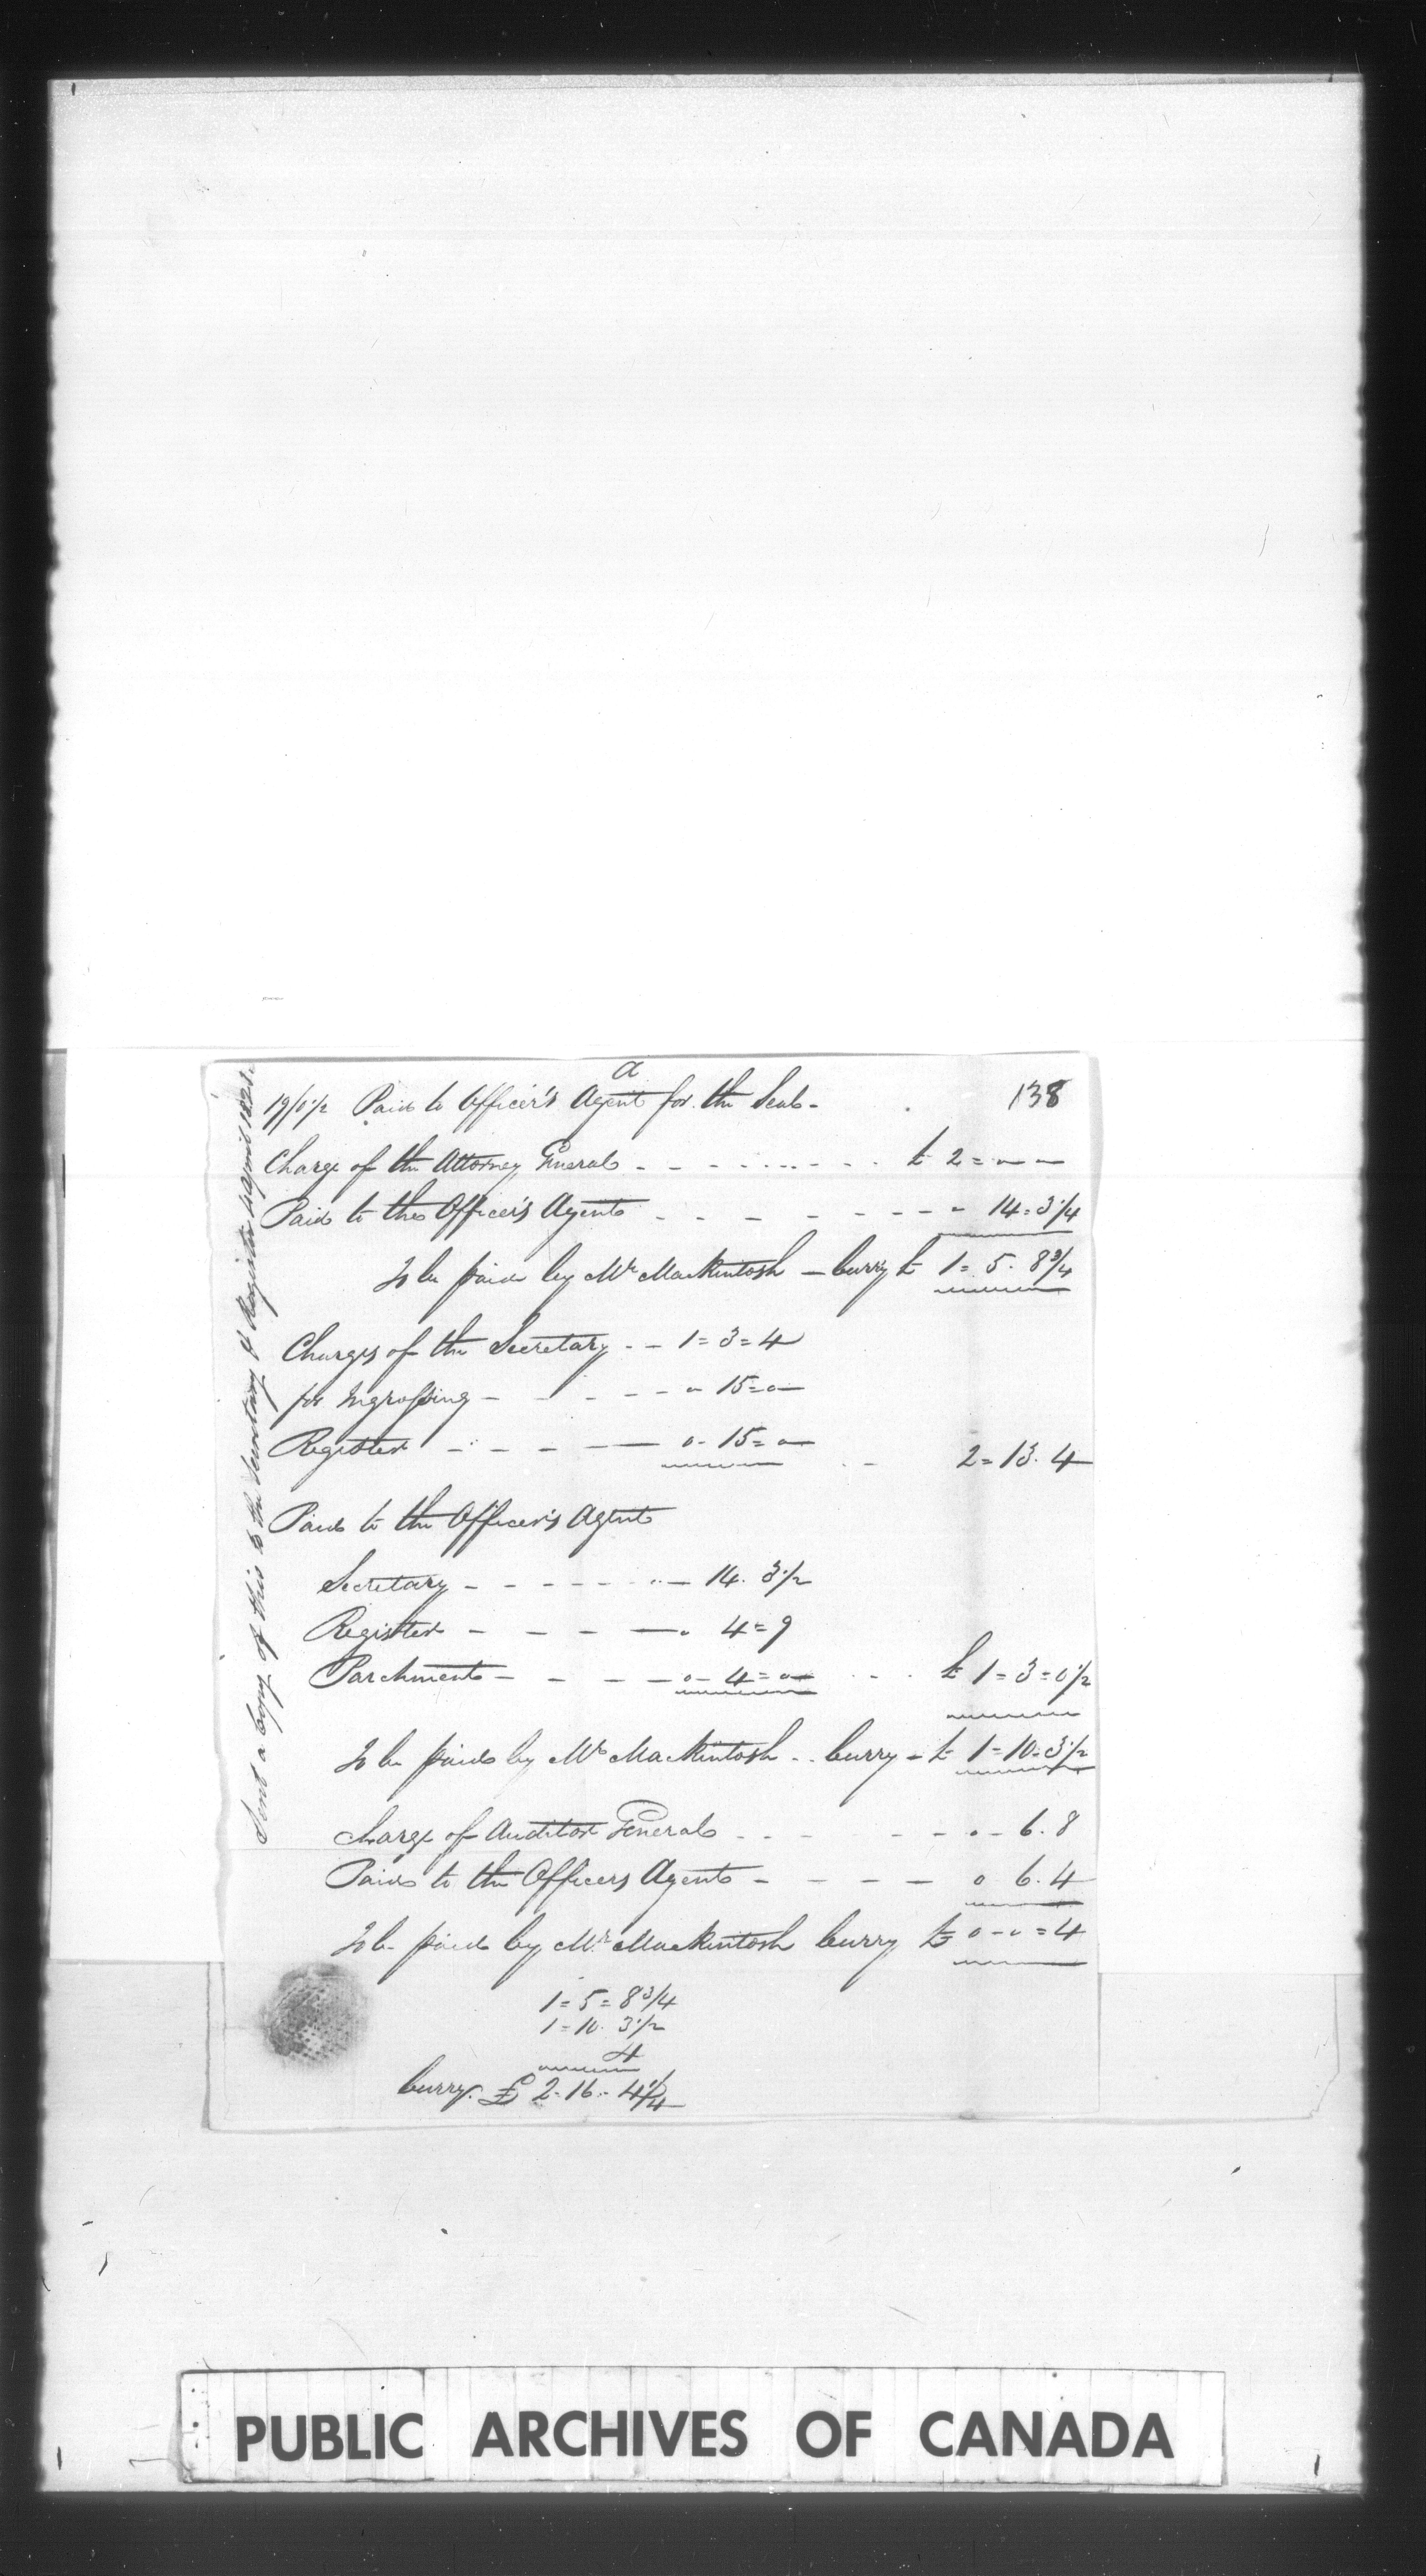 a
138
19/0½ Paid to Officer's Agent for the Seal -
Charge of the Attorney General - - - - - - - £ 2 = " "
Paid to the Officer's Agents - - - - - - - - 14 = 3¼
To be paid by Mr MacKintosh - Curry £ 1 = 5 . 8¾
Charges of the Secretary - - 1 = 3 = 4
for Ingrossing - - - - - 15 = 0
Register - - - - 0 - 15 = 0
2 = 13 . 4
Paid to the Officer's Agent
Secretary - - - - - - 14 . 3½
Register - - - - 4 = 9
Parchment - - - - 0 - 4 = 0 - - £ 1 = 3 = 0½
To be paid by Mr MacKintosh - - Curry - £ 1 = 10 - 3½
Charge of Auditor General - - - - - 0 - 6 . 8
Paid to the Officers Agent - - - - 0 6 . 4
To be paid by Mr MacKintosh Curry £ 0 - 0 = 4
1 = 5 = 8¾
1 = 10 . 3½
4
Curry. £ 2 - 16 - 4¼
Sent a Copy of this to the Secretary & Register 4 April 1821.
PUBLIC ARCHIVES OF CANADA